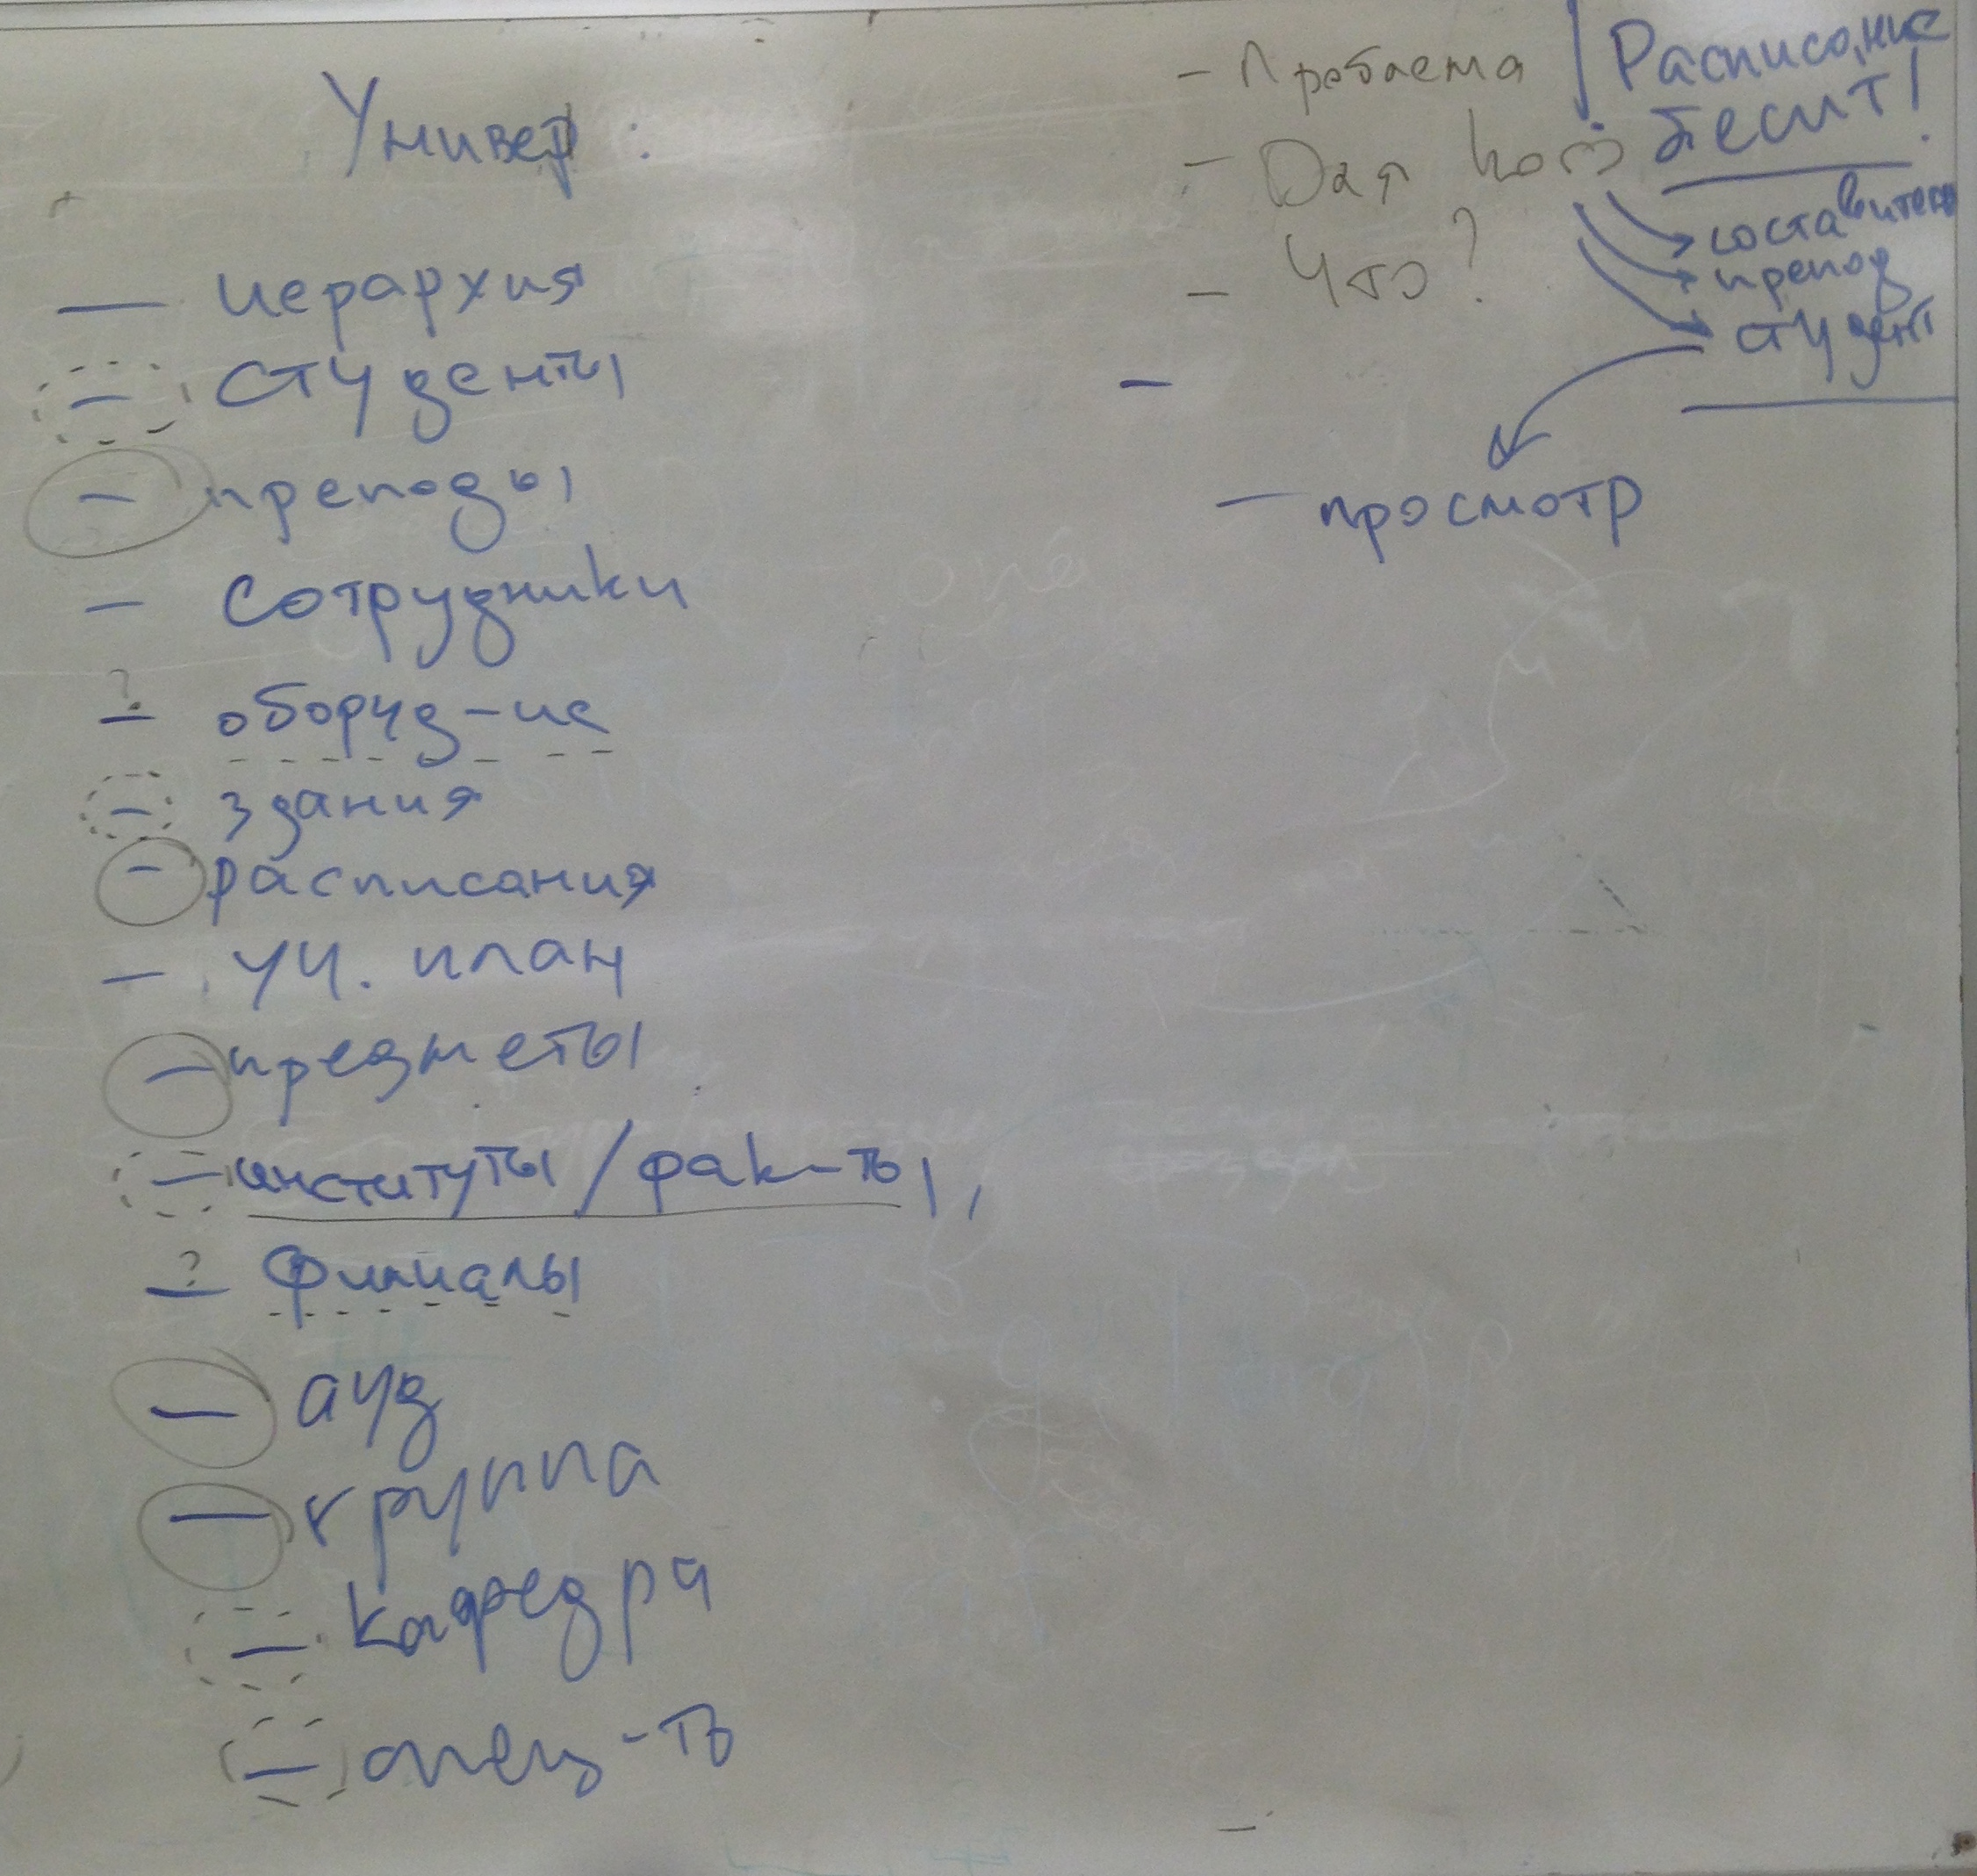 Универ:
— иерархия
— студенты
— преподы
— сотрудники
? — оборуд-ие
— здания
— расписания
— уч. план
— предметы
— институты/фак-ты,
? — филиалы
— ауд
— группа
— кафедра
— спец-ть
– Проблема
– Для кого
– Что?
–
Расписание
бесит!
составитель
препод
студент
– просмотр